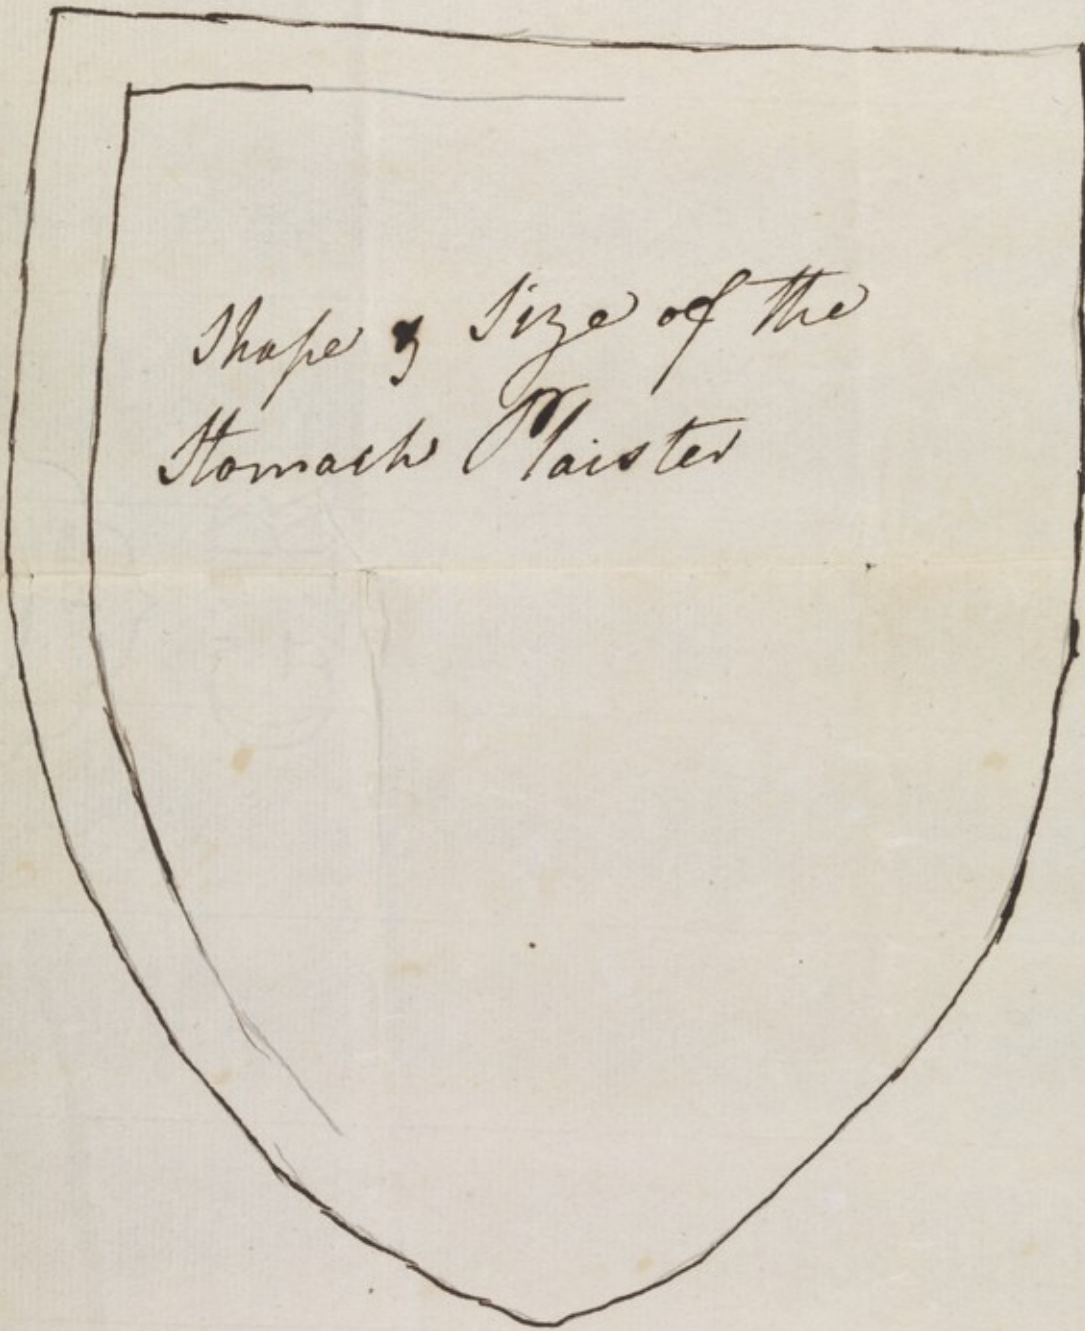 Shape & Size of the
Stomach Plaister